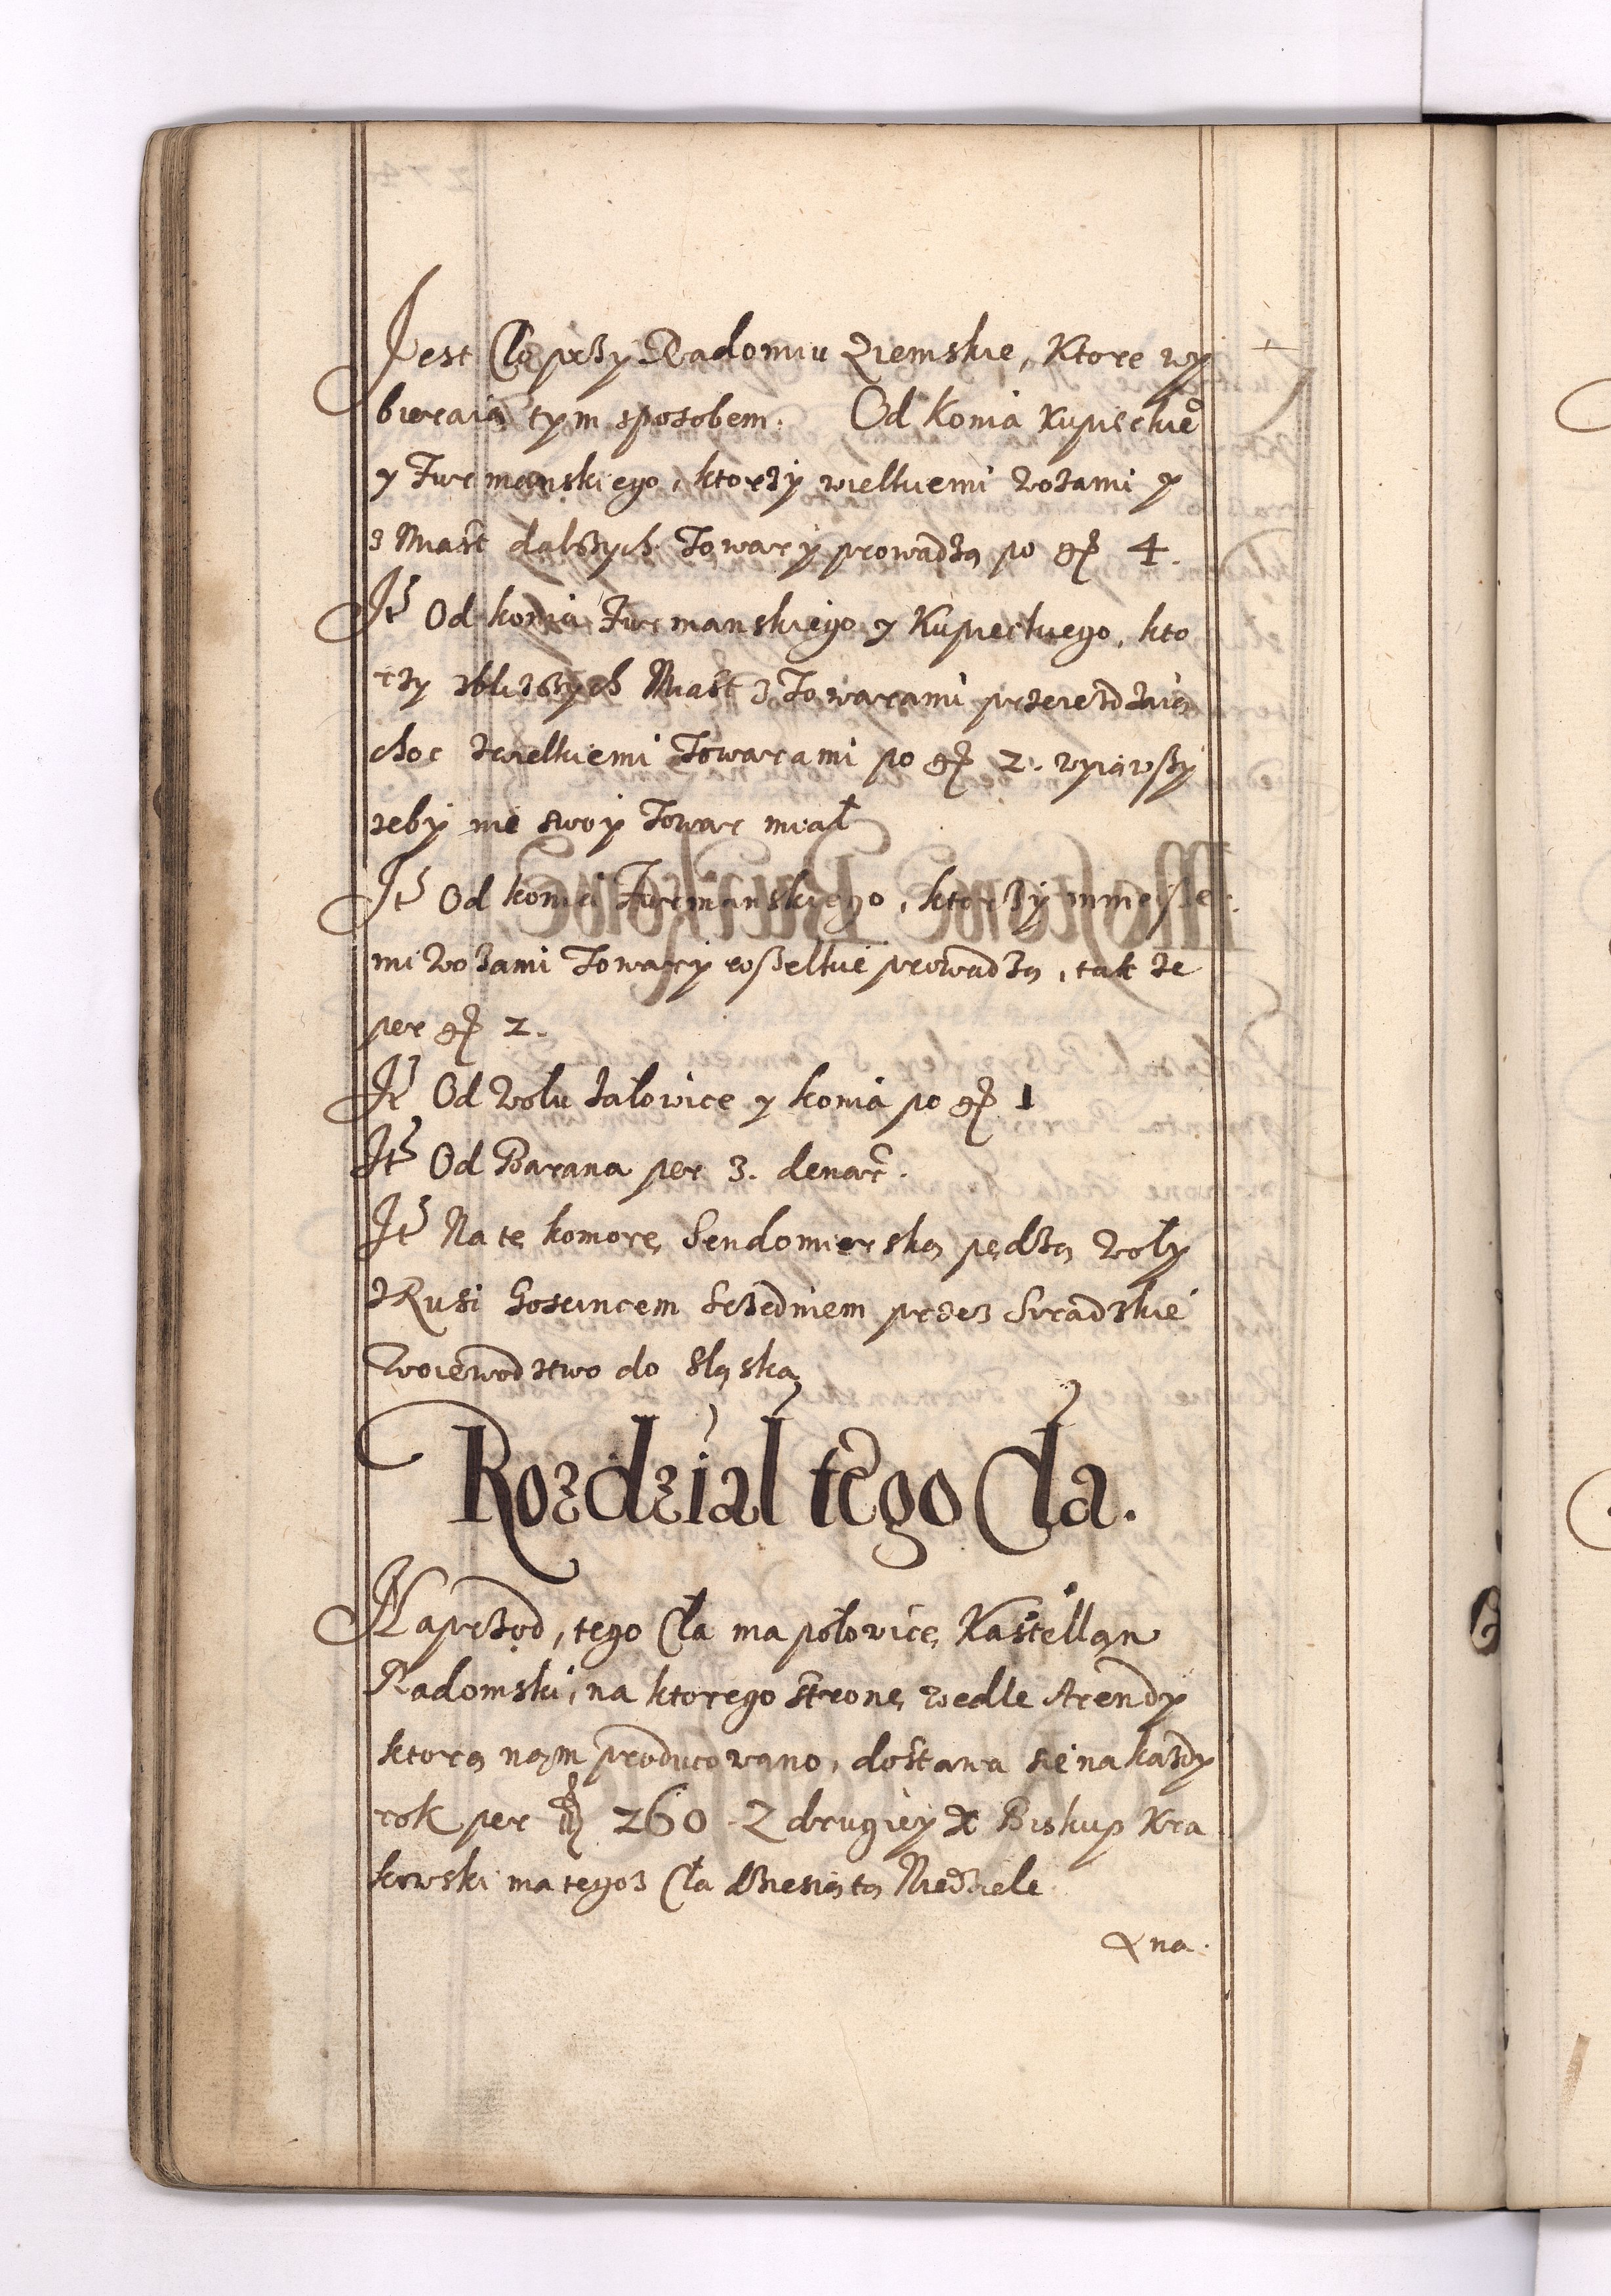 Jest Cło przy Radomiu Ziemskie, Ktore wy
bieraią tym sposobem. Od Konia Kupieckie°
y Furmanskiego, ktorzy wielkiemi Wozami y
z Miast dalszych Towary prowadzą po gr 4.
Jt Od konia Furmanskiego y Kupieckiego, kto
rzy zbliższych Miast z Towarami przeiezdzaią
choc zwielkiemi Towarami po gr 2. wyiąwszy
zeby nie swoy Towar miał
Jt Od konia Furmanskiego, ktorzy mnieysze
mi Wozami Towary wszelkie prowadzą, tak ze
per gr 2.
Jt Od Wołu Jałowice y konia po gr 1
Jt Od Barana per 3. denar.
Jt Na tę komorę Sendomierską pędzą Woły
z Rusi Goscincem Srzedniem przez Siradzkie
Woiewodztwo do Sląska
Rozdział tego Cła.
Naprzod, tego Cła ma połowicę Kasztellan
Radomski, na ktorego stronę wedle Arendy
ktorą nąm producowano, dostawa sie na kazdy
rok per fl 260 Z drugiey X Biskup Kra
kowski ma tegoz Cła dziesiątą Niedziele
&na.